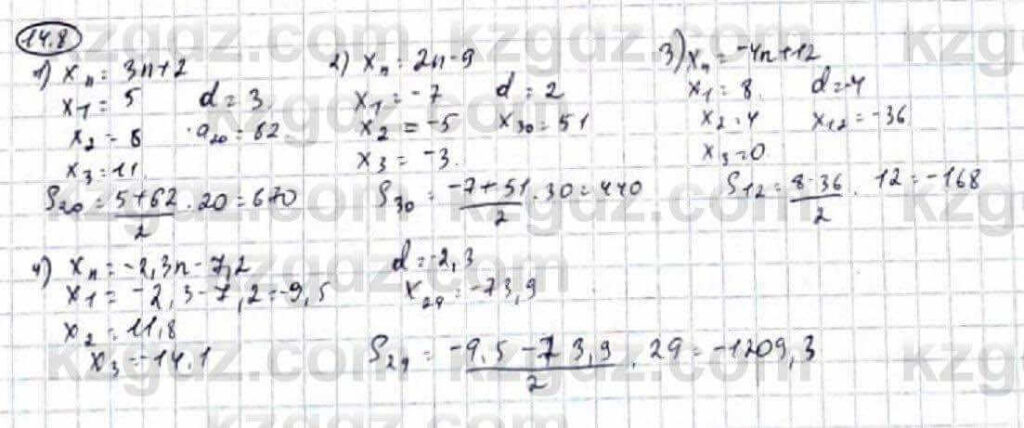 14.8
1) xₙ = 3n+2
x₁ = 5 d = 3
x₂ = 8 a₂₀ = 62
x₃ = 11
S₂₀ = (5+62)/2 · 20 = 670
2) xₙ = 2n-9
x₁ = -7 d = 2
x₂ = -5 x₃₀ = 51
x₃ = -3
S₃₀ = (-7+51)/2 · 30 = 440
3) xₙ = -4n+12
x₁ = 8 d = -4
x₂ = 4 x₁₂ = -36
x₃ = 0
S₁₂ = (8-36)/2 · 12 = -168
4) xₙ = -2,3n-7,2 d = -2,3
x₁ = -2,3-7,2 = -9,5 x₂₉ = -73,9
x₂ = 11,8
x₃ = -14,1
S₂₉ = (-9,5-73,9)/2 · 29 = -1209,3
kzgdz.com